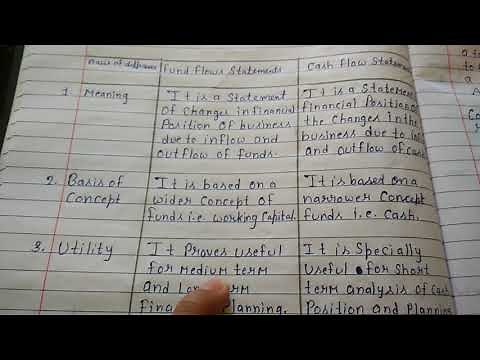 Basis of difference
Fund Flows Statements
Cash Flow Statem
1. Meaning
It is a Statement
of Changes in financial
Position of business
due to inflow and
outflow of funds.
It is a Statement
financial Position of
the Changes in the
business due to
and outflow of
2. Basis of
Concept
It is based on a
wider Concept of
funds i.e. working Capital.
It is based on a
narrower Concept
funds i.e. Cash.
3. Utility
It Proves useful
for medium term
and
Planning.
It is Specially
useful for Short
term analysis of
Position and Planning